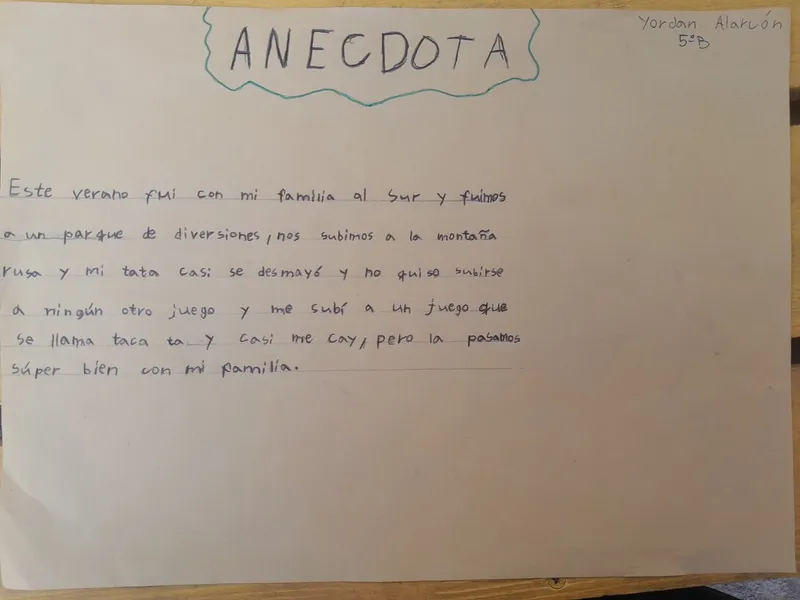 ANECDOTA
Yordan Alarcón
5ºB
Este verano fui con mi familia al sur y fuimos
a un parque de diversiones, nos subimos a la montaña
rusa y mi tata casi se desmayó y no quiso subirse
a ningún otro juego y me subí a un juego que
se llama taca ta y casi me cay, pero la pasamos
súper bien con mi familia.